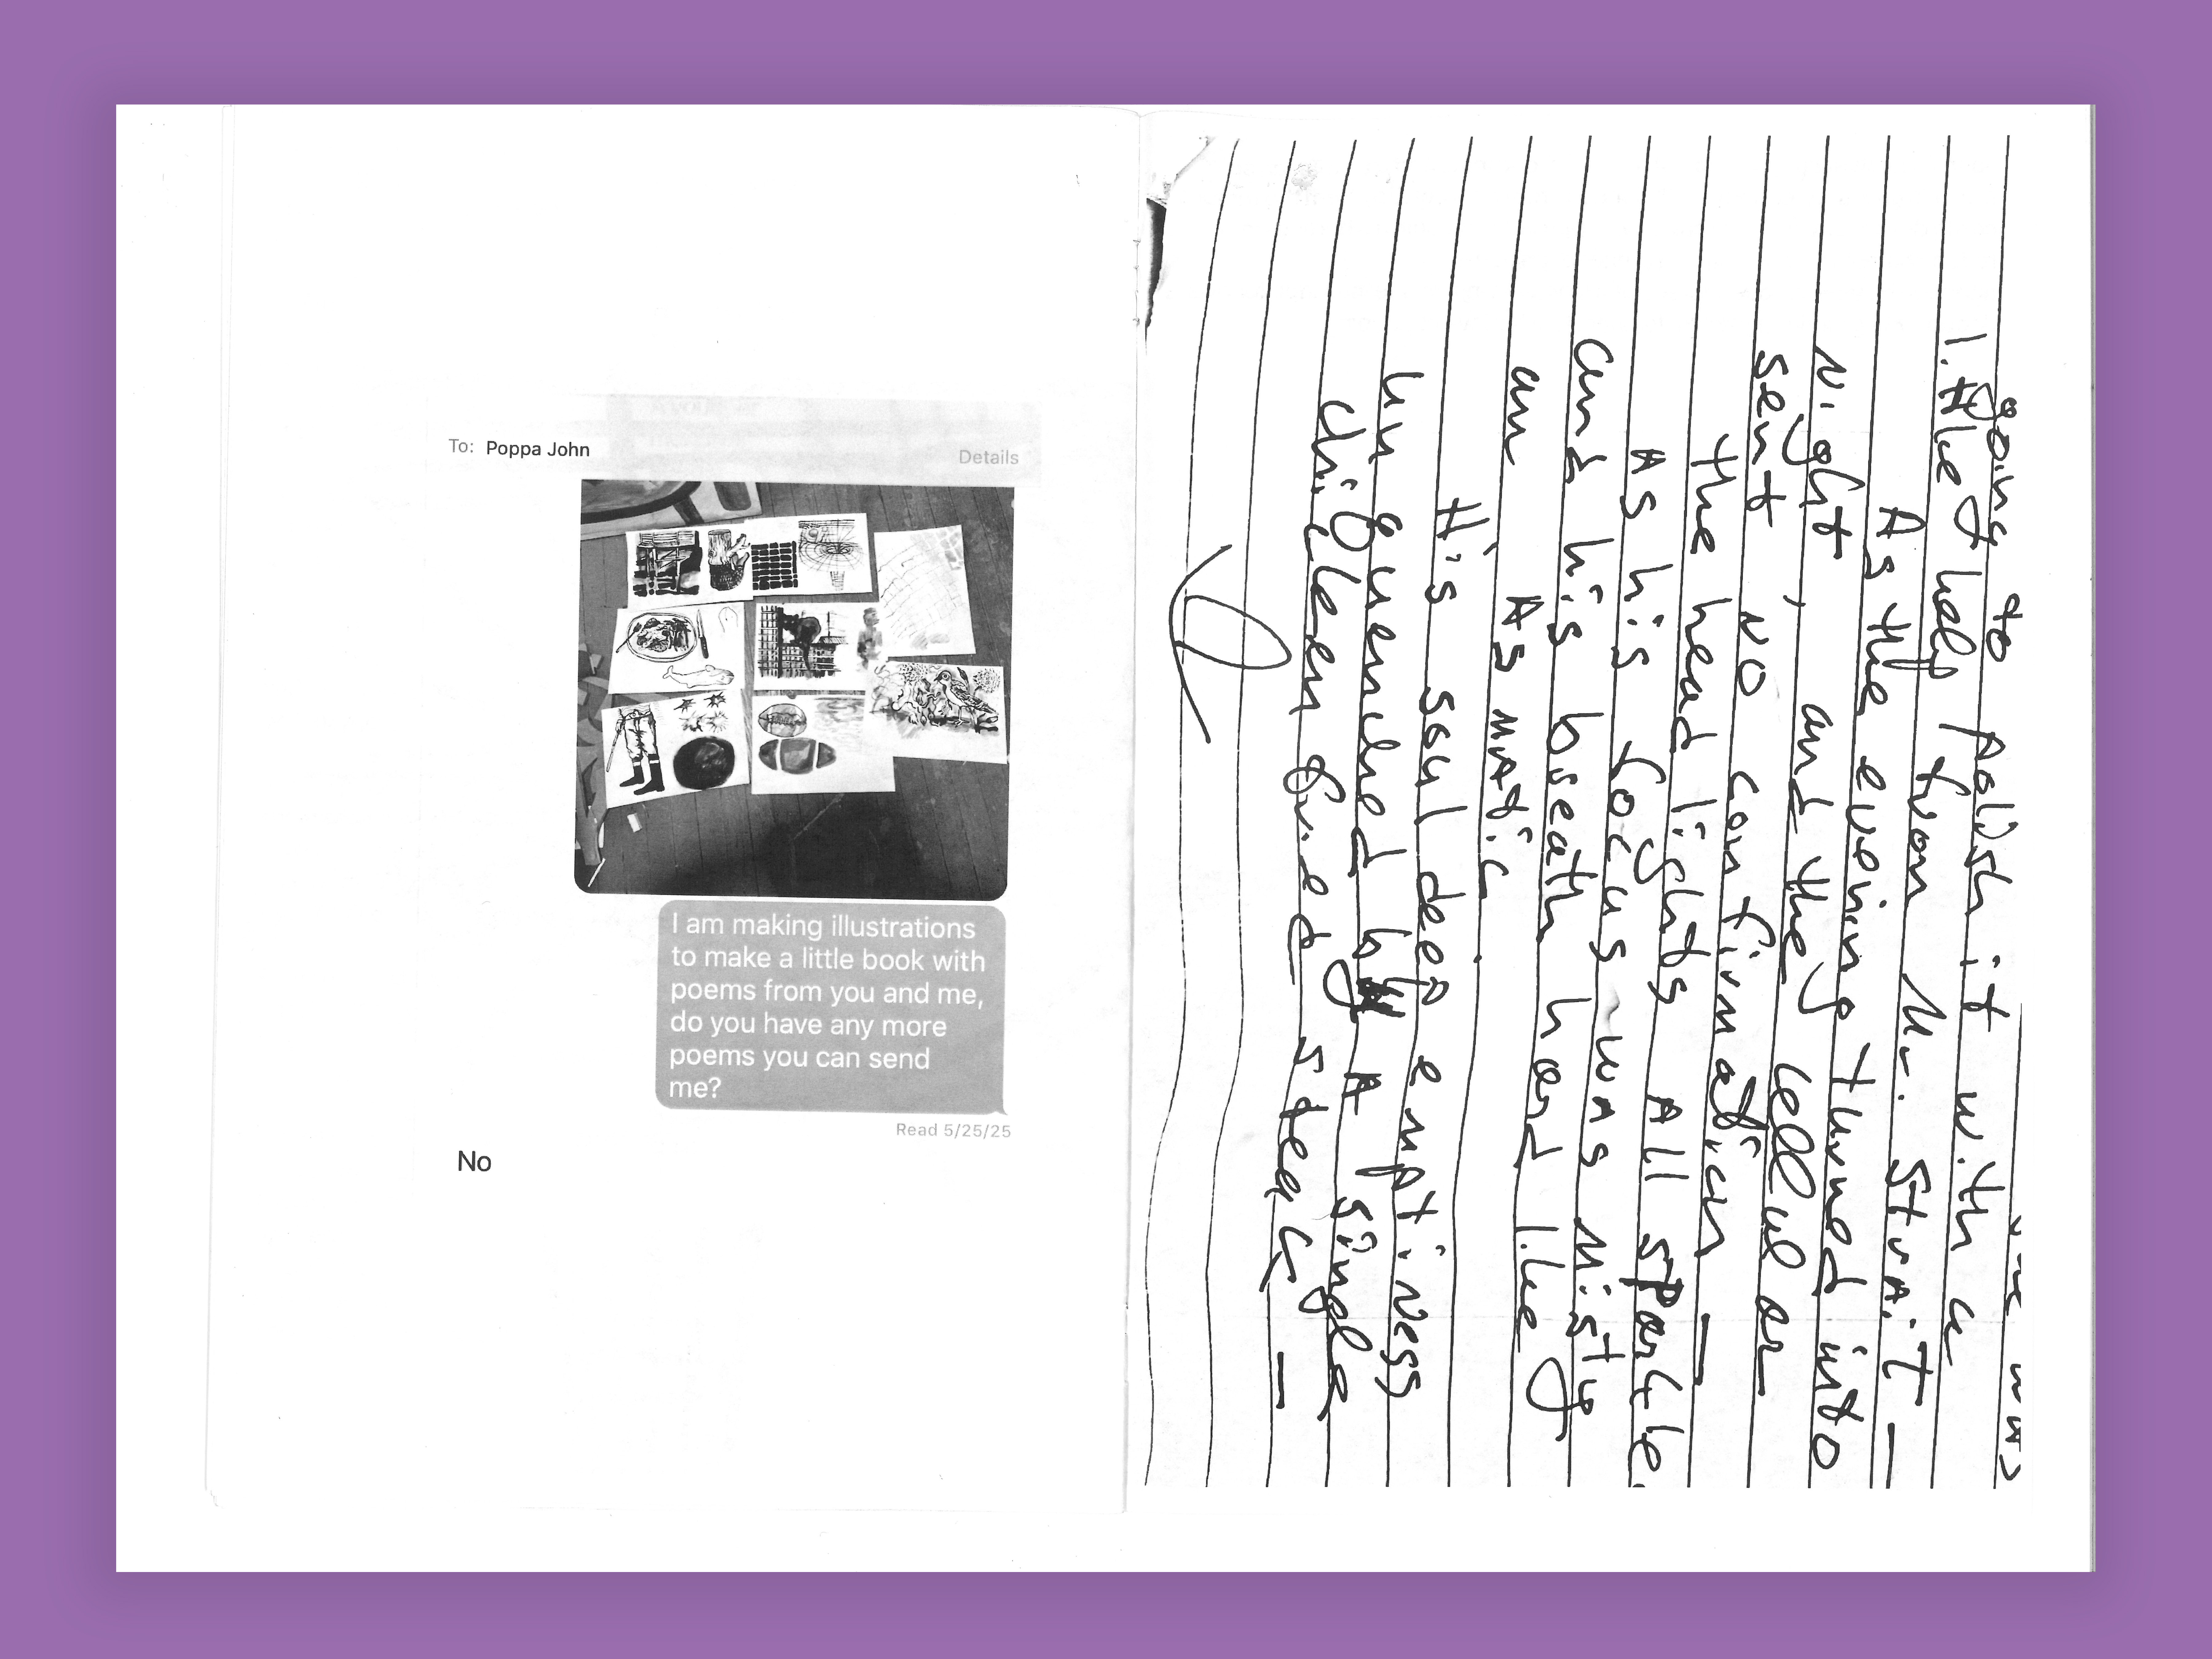 To: Poppa John
Details
I am making illustrations
to make a little book with
poems from you and me,
do you have any more
poems you can send
me?
Read 5/25/25
No
was
going to polish it with a
little help from Mr. Strait —
As the evening turned into
Night, and the cellular
sent NO confirmation —
the head lights All sparkle
As his focus was misty
and his breath hard like
an AsMAtic.
His soul deep emptiness
unquenched by A single
chicken fried steak —